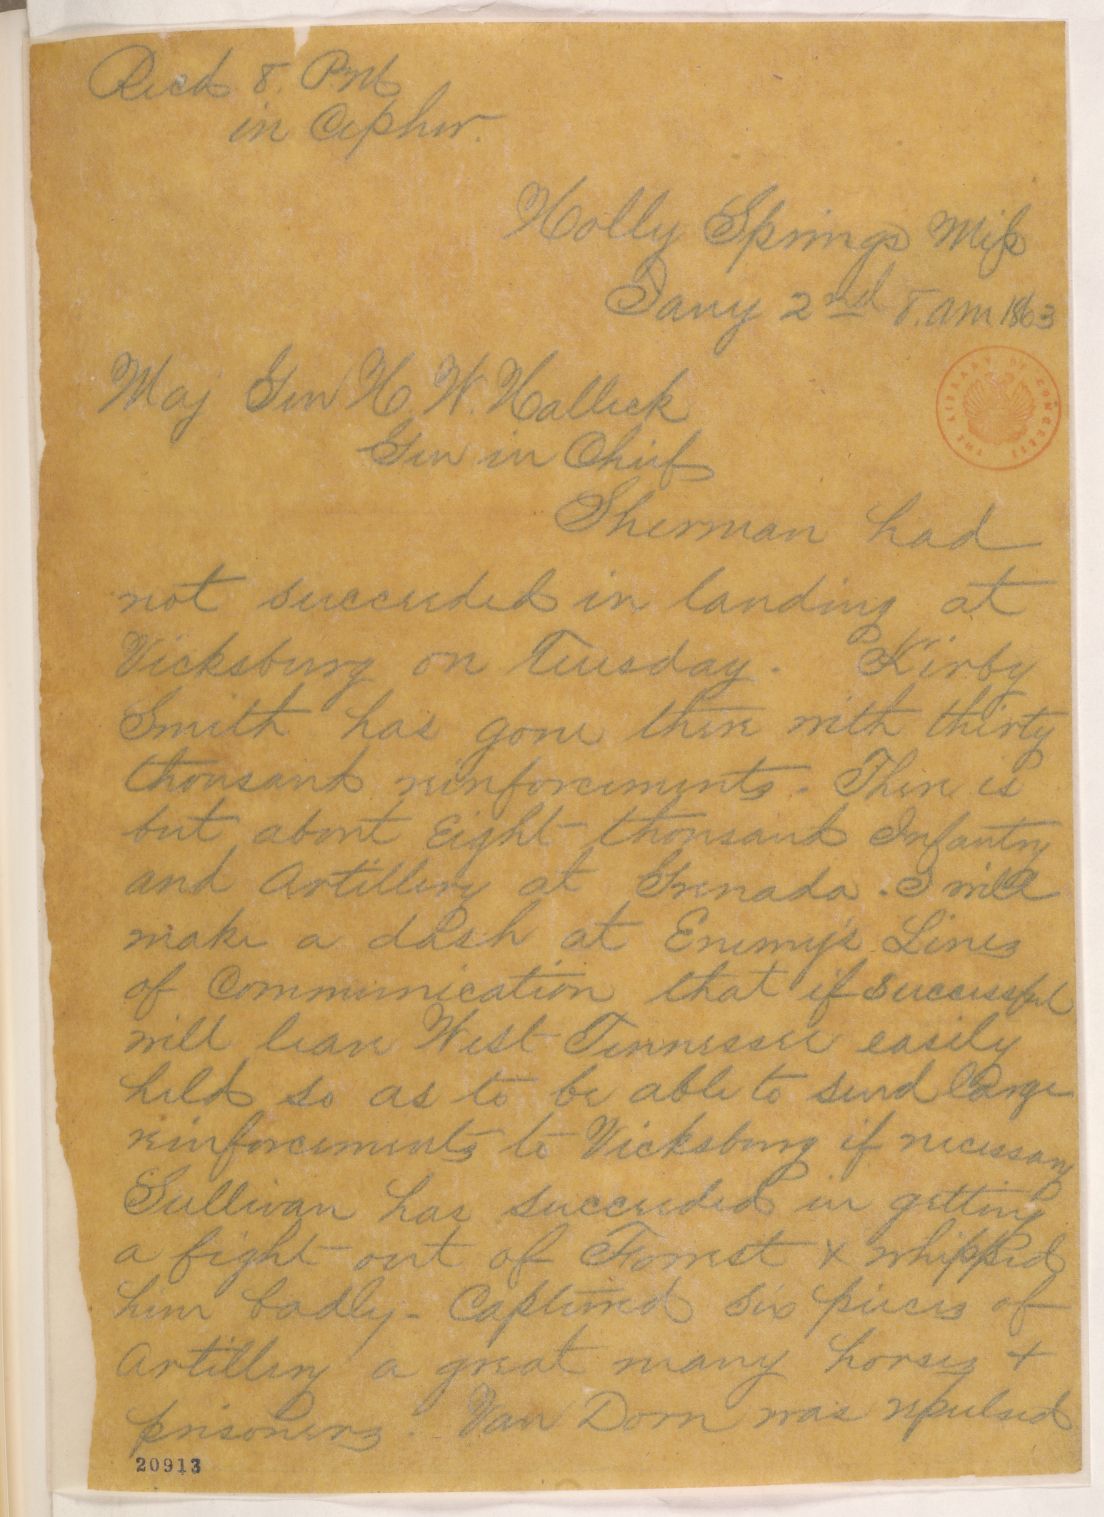 Recd 8. PM
in Cipher.
Holly Springs Miss
Jany 2nd 8. am 1863
Maj Gen H. W. Halleck
Gen in Chief
Sherman had
not succeeded in landing at
Vicksburg on Tuesday. Kirby
Smith has gone there with thirty
thousand reinforcements. There is
but about Eight thousand Infantry
and Artillery at Grenada. I will
make a dash at Enemy's Lines
of Communication that if successful
will leave West Tennessee easily
held so as to be able to send large
reinforcements to Vicksburg if necessary
Sullivan has succeeded in getting
a fight out of Forrest & whipped
him badly. Captured six pieces of
Artillery a great many horses &
prisoners. Van Dorn was repulsed
20913
THE LIBRARY OF CONGRESS